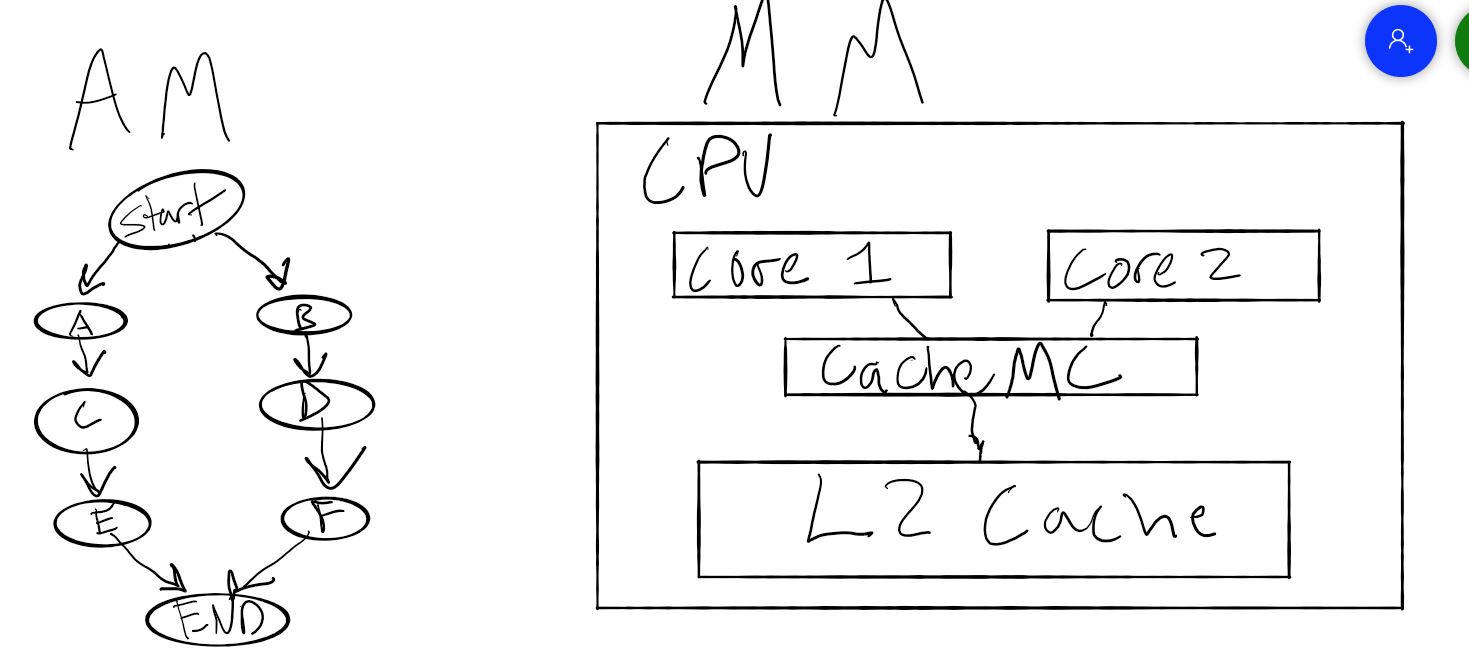 AM
start
A
B
C
D
E
F
END
MM
CPU
Core 1
Core 2
Cache MC
L2 Cache